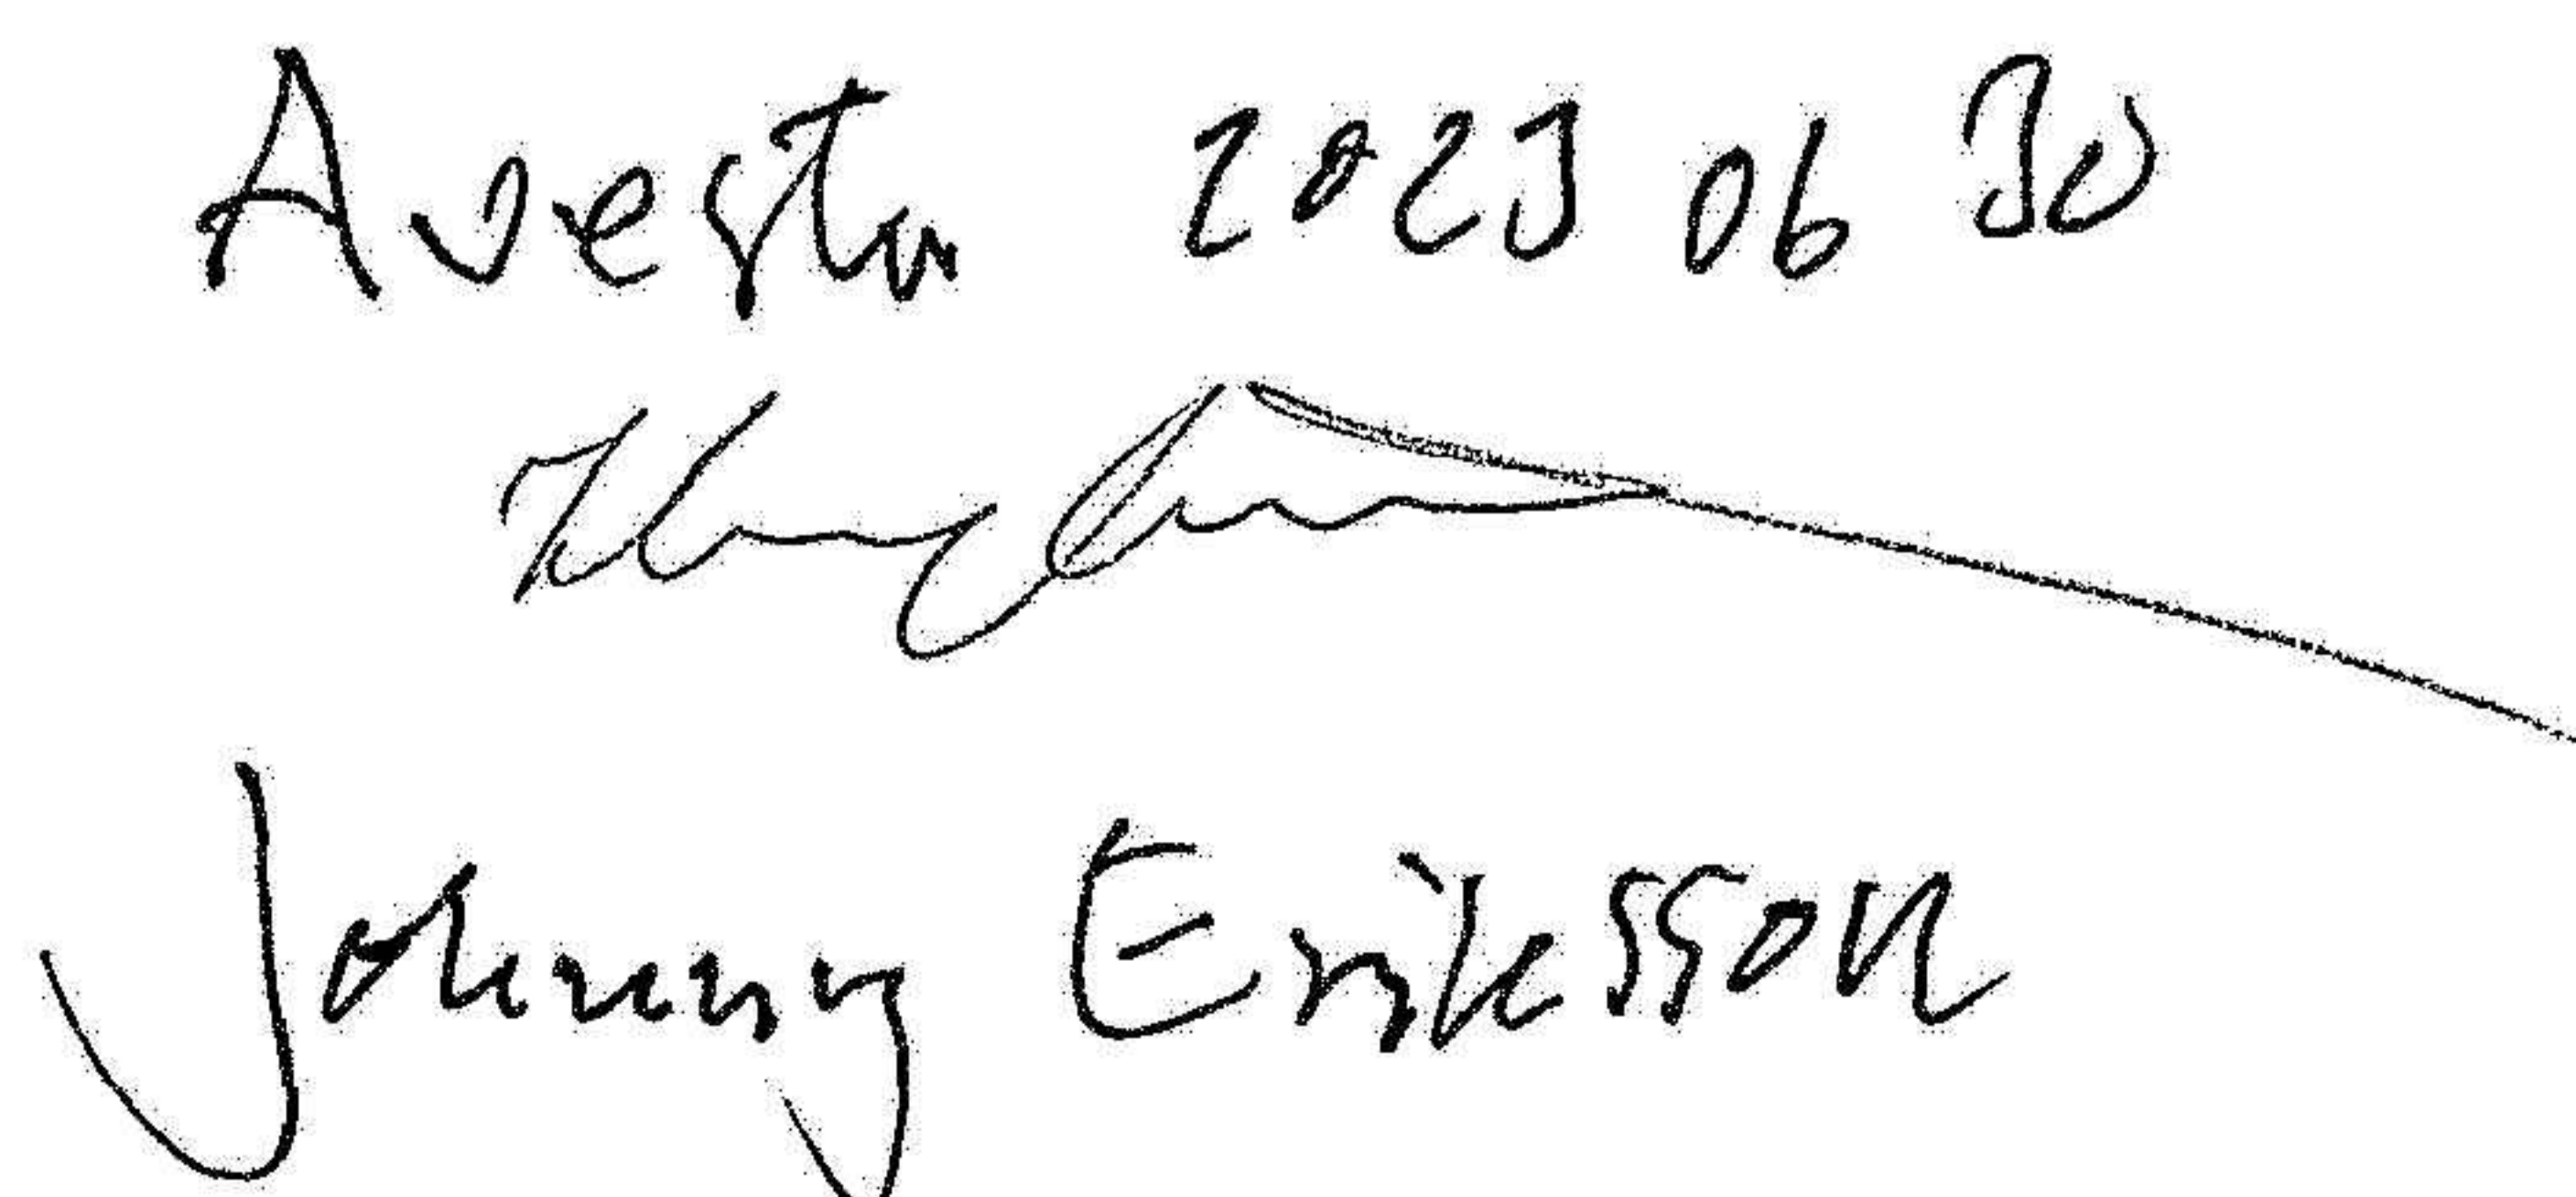 Avesta 2023 06 30
Johnny Eriksson